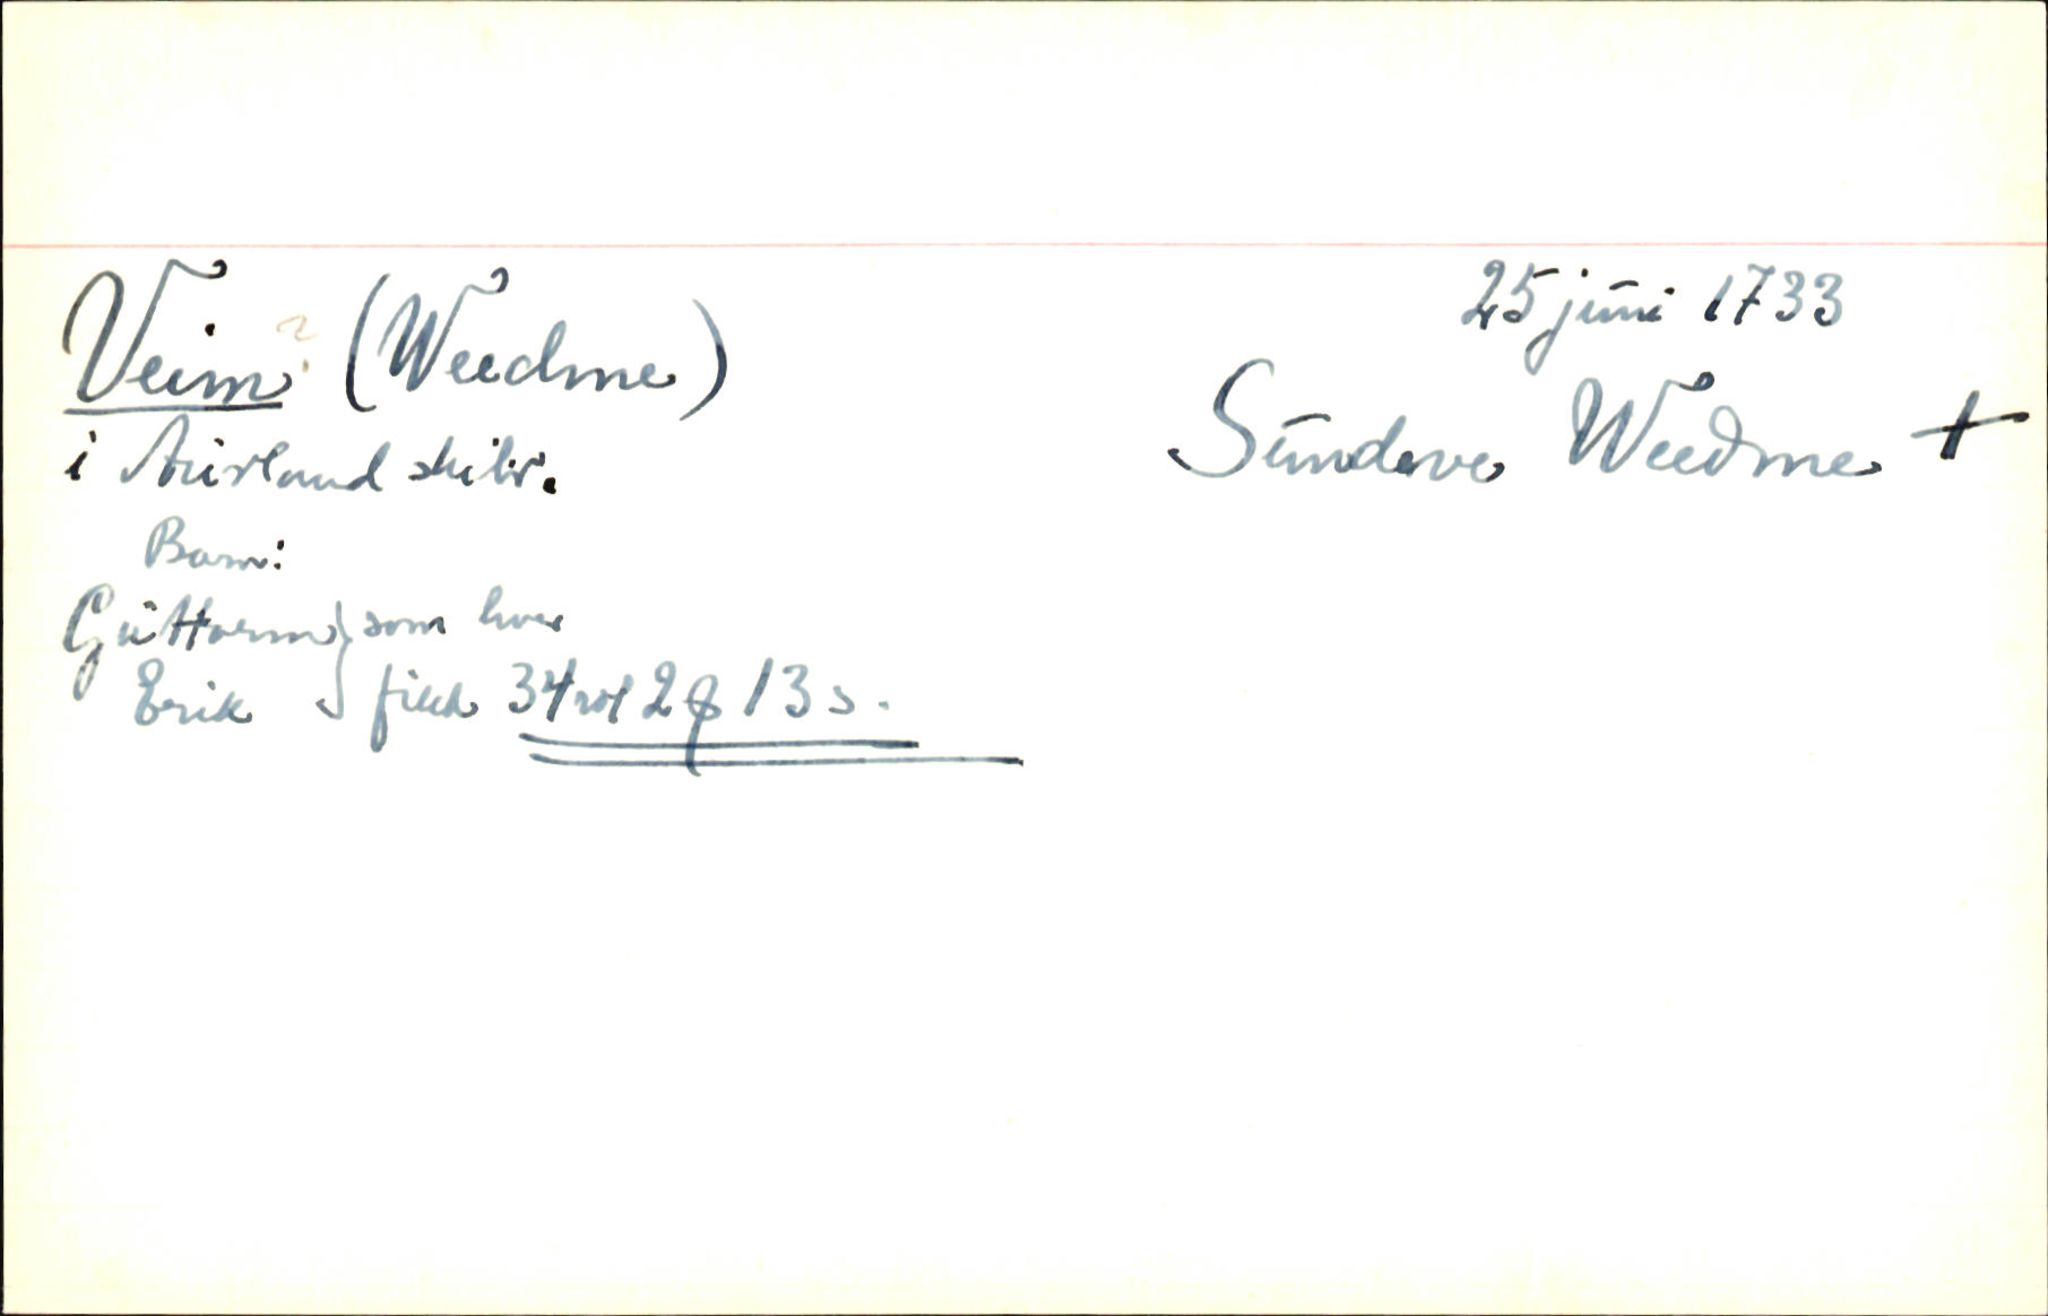 Veim? (Weedme)
i Aurland skibr.
Barn:
Guttorm } som hver
Erik } fikk 34 rd 2 ꝑ 13 s.
25 juni 1733
Sundeve Weedme +